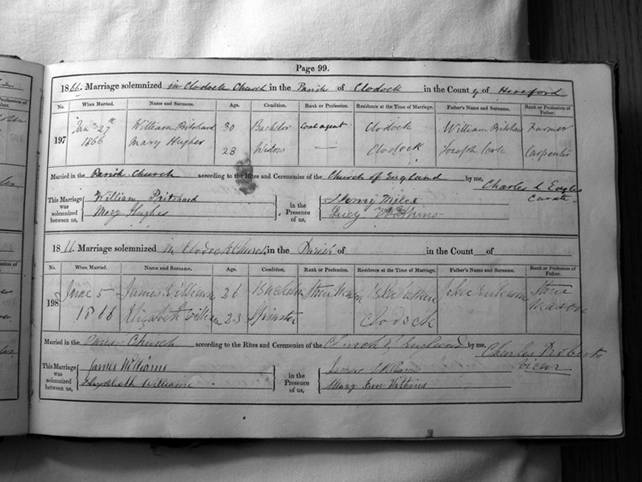 Page 99.
1866. Marriage solemnized in Clodock Church in the Parish of Clodock in the County of Hereford
No. When Married. Name and Surname. Age. Condition. Rank or Profession. Residence at the Time of Marriage. Father's Name and Surname. Rank or Profession of Father.
197 27th 1866 William Pritchard 30 Bachelor Coal agent Clodock William Pritchard Farmer
Mary Hughes 28 Widow — Clodock Joseph Carpenter
Married in the Parish Church according to the Rites and Ceremonies of the Church of England by me, Charles L Eagles
Curate
This Marriage was solemnized between us, William Pritchard
Mary Hughes
in the Presence of us, Henry
1866. Marriage solemnized in Clodock Church in the Parish of in the County of
No. When Married. Name and Surname. Age. Condition. Rank or Profession. Residence at the Time of Marriage. Father's Name and Surname. Rank or Profession of Father.
198 June 5 1866 James Williams 26 Bachelor Stone
Mason
Elizabeth Williams 23 Spinster Clodock
Married in the Church according to the Rites and Ceremonies of the Church of England by me, Charles
Vicar
This Marriage was solemnized between us, James Williams
Elizabeth Williams
in the Presence of us, Williams
Mary Ann Watkins